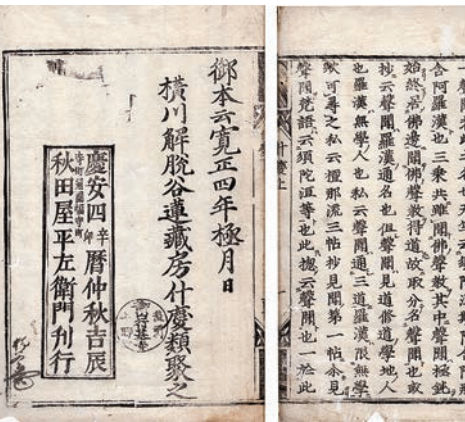 含阿羅漢也三乗共雖聞佛聲教其中聲聞極鈍
始終居佛邊聞佛聲教得道故取分名聲聞也或
抄云聲聞羅漢通名也但聲聞見道修道學地人
也羅漢無學人也私云聲聞通三道羅漢限無學
歟可尋之私云檀那流三帖抄見聞第一帖余見
聲聞梵語云須陀洹等也此摠云聲聞也一於此
御本云寛正四年極月日
横川解脱谷蓮藏房什慶類聚之
慶安四辛卯暦仲秋吉辰
秋田屋平左衛門刊行